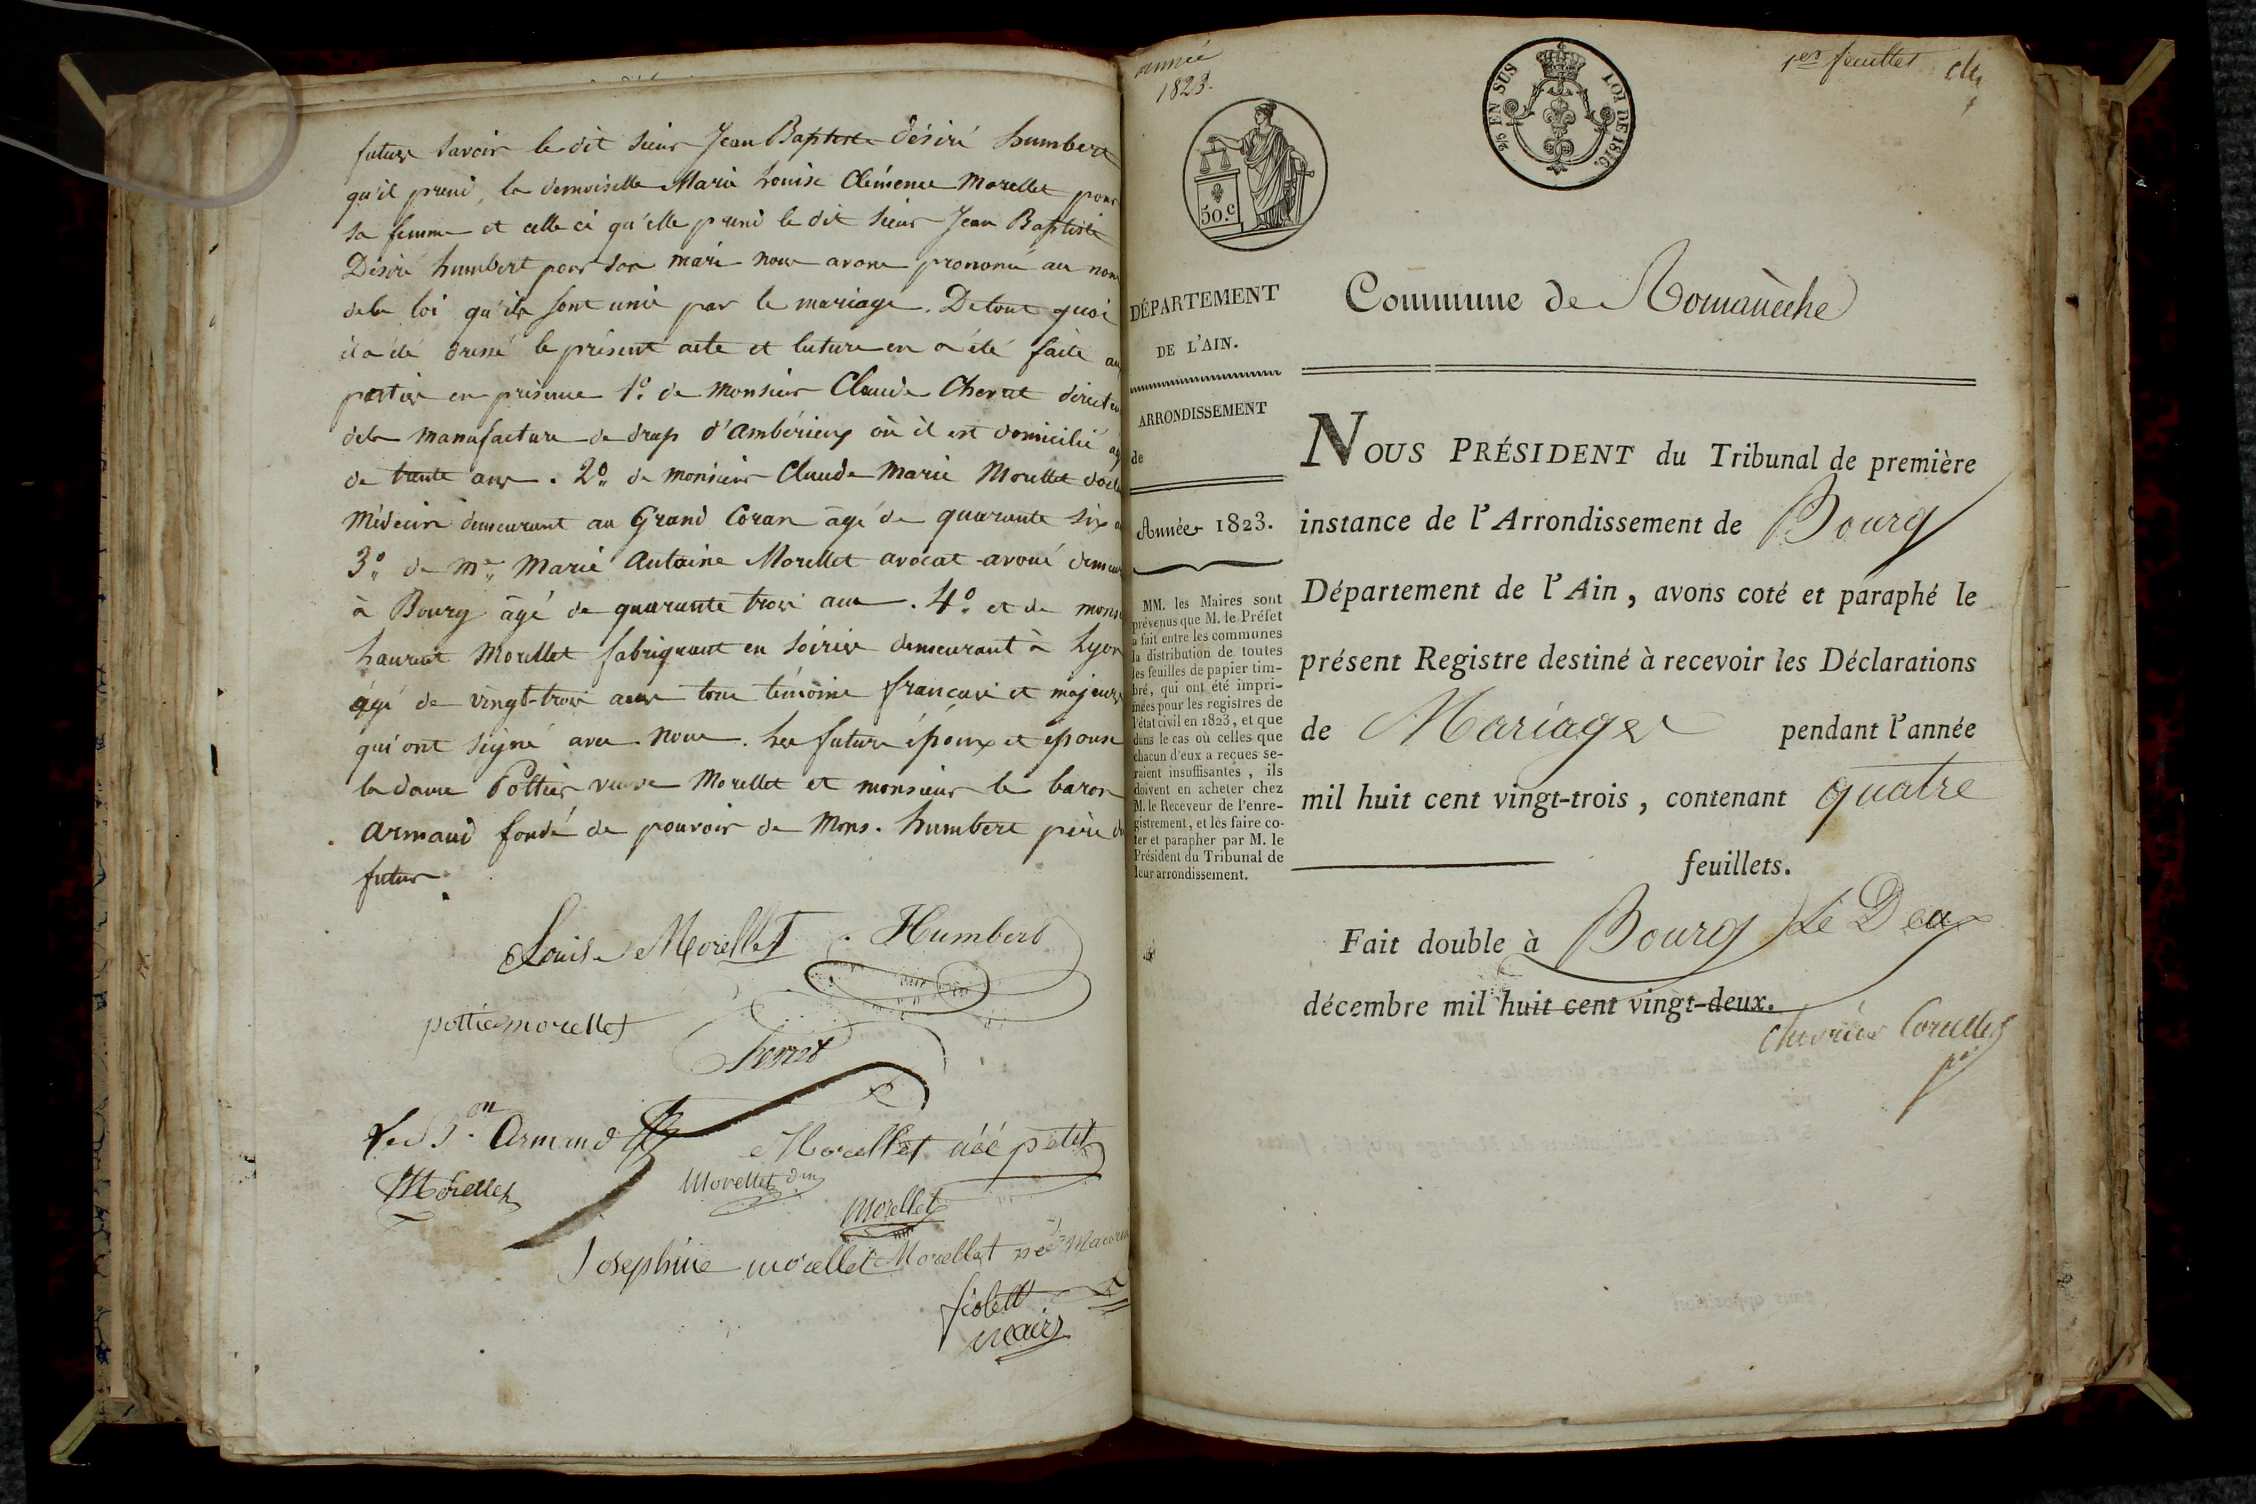 future savoir le dit sieur Jean Baptiste désiré humbert
qu'il prend la demoiselle Marie Louise Clémence Morellet pour
sa femme et celle ci qu'elle prend le dit sieur Jean Baptiste
Désiré humbert pour son mari nous avons prononcé au nom
de la loi qu'ils sont unis par le mariage. De tout quoi
il a été dressé le présent acte et lecture en a été faite au
parties en présence 1.o de monsieur Claude Chevat directeu
de la manufacture de drap d'ambérieux où il est domicilié ag
de trente ans. 2.o de monsieur Claude Marie Morellet docte
Médecin demeurant au Grand Coran âgé de quarante six a
3.o de me. Marie Antoine Morellet avocat-avoué demeur
à Bourg âgé de quarante trois ans. 4.o et de monsi
Laurent Morellet fabriquant en soiries demeurant à Lyon
âgé de vingt-trois ans tous témoins français et majeurs
qui ont signé avec nous. Les futurs époux et épouse
la dame Pottier veuve Morellet et monsieur le baron
armand fondé de pouvoir de Mons. humbert père du
futur.
Louise Morellet Humbert
pottier morellet
Le B.on Armand
Morellet née petit
Morellet
Morellet dm
Morellet
Josephine morellet Morellet née
maire
année
1823.
1er feuillet
50.C
2/5 EN SUS LOI DE 1816.
DÉPARTEMENT
DE L'AIN.
ARRONDISSEMENT
de
Année 1823.
MM. les Maires sont
prévenus que M. le Préfet
a fait entre les communes
la distribution de toutes
les feuilles de papier tim-
bré, qui ont été impri-
mées pour les registres de
l'état civil en 1823, et que
dans le cas où celles que
chacun d'eux a reçues se-
raient insuffisantes, ils
doivent en acheter chez
M. le Receveur de l'enre-
gistrement, et les faire co-
ter et parapher par M. le
Président du Tribunal de
leur arrondissement.
Commune de Romanèche
NOUS PRÉSIDENT du Tribunal de première
instance de l'Arrondissement de Bourg
Département de l'Ain, avons coté et paraphé le
présent Registre destiné à recevoir les Déclarations
de Mariages pendant l'année
mil huit cent vingt-trois, contenant quatre
feuillets.
Fait double à Bourg le Deux
décembre mil huit cent vingt-deux.